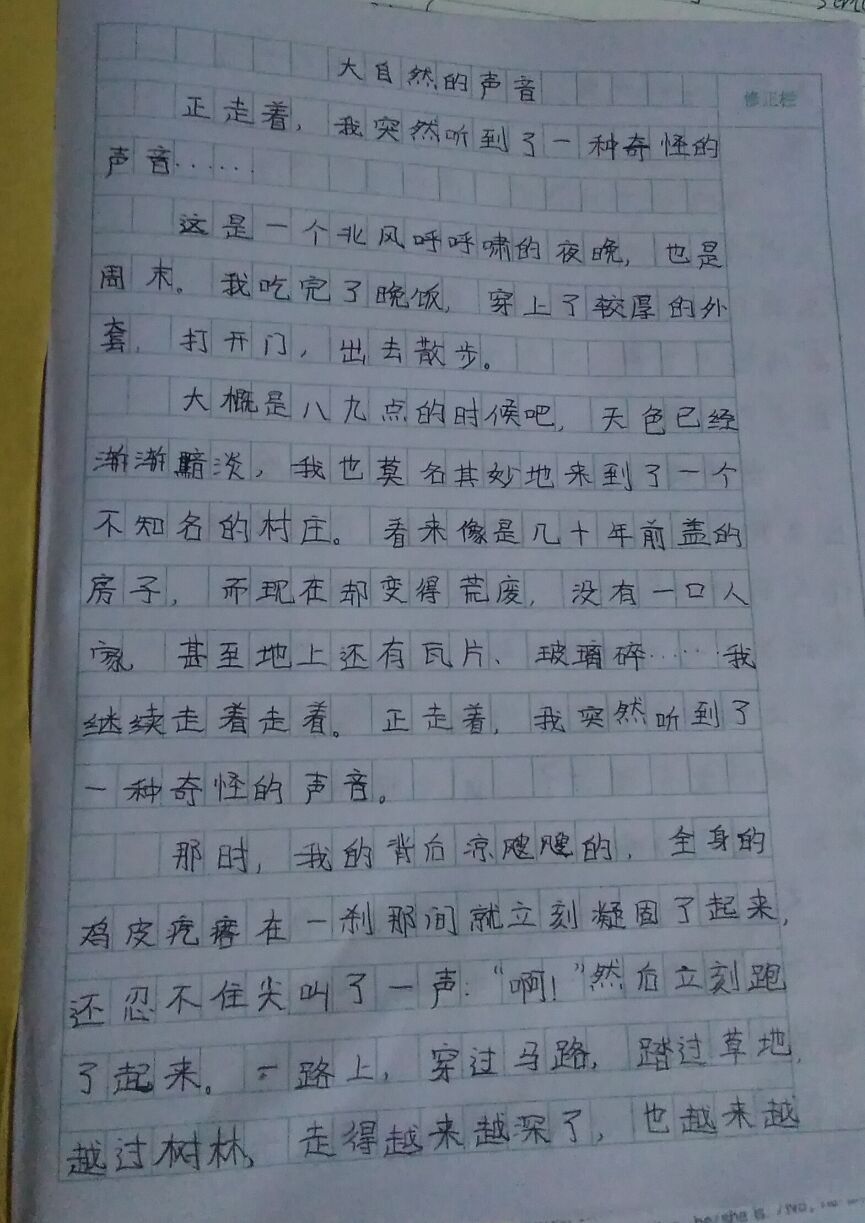 大自然的声音
修正栏
正走着，我突然听到了一种奇怪的
声音……
这是一个北风呼呼啸的夜晚，也是
周末。我吃完了晚饭，穿上了较厚的外
套，打开门，出去散步。
大概是八九点的时候吧，天色已经
渐渐黯淡，我也莫名其妙地来到了一个
不知名的村庄。看来像是几十年前盖的
房子，而现在却变得荒废，没有一口人
家，甚至地上还有瓦片、玻璃碎……我
继续走着走着。正走着，我突然听到了
一种奇怪的声音。
那时，我的背后凉飕飕的，全身的
鸡皮疙瘩在一刹那间就立刻凝固了起来，
还忍不住尖叫了一声：“啊！”然后立刻跑
了起来。一路上，穿过马路，踏过草地，
越过树林，走得越来越深了，也越来越